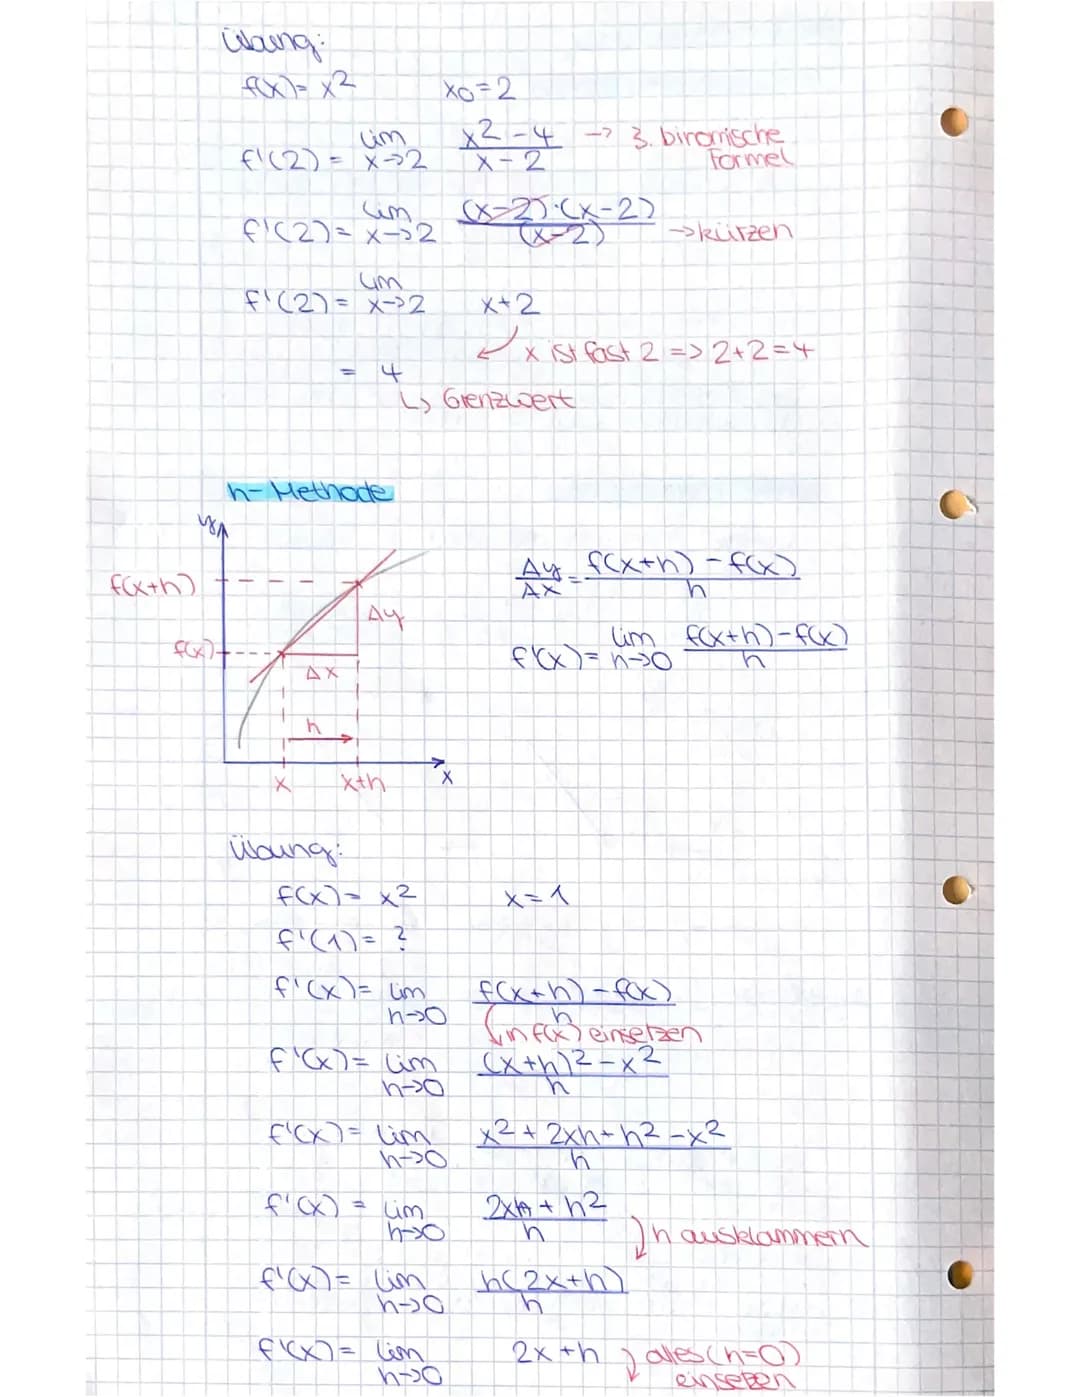 Übung:
f(x) = x²   x₀ = 2
f'(2) = lim x→2 (x² - 4)/(x - 2) → 3. binomische Formel
f'(2) = lim x→2 ((x-2)·(x-2))/(x-2) → kürzen
f'(2) = lim x→2 x+2
x ist fast 2 => 2+2=4
= 4
↳ Grenzwert
h-Methode
y
f(x+h)
f(x)
Δy
Δx
h
x   x+h   x
Δy/Δx = (f(x+h) - f(x))/h
f'(x) = lim h→0 (f(x+h) - f(x))/h
Übung:
f(x) = x²   x = 1
f'(1) = ?
f'(x) = lim h→0 (f(x+h) - f(x))/h
in f(x) einsetzen
f'(x) = lim h→0 ((x+h)² - x²)/h
f'(x) = lim h→0 (x² + 2xh + h² - x²)/h
f'(x) = lim h→0 (2xh + h²)/h
h ausklammern
f'(x) = lim h→0 (h(2x+h))/h
f'(x) = lim h→0 2x+h
alles (h=0) einsetzen